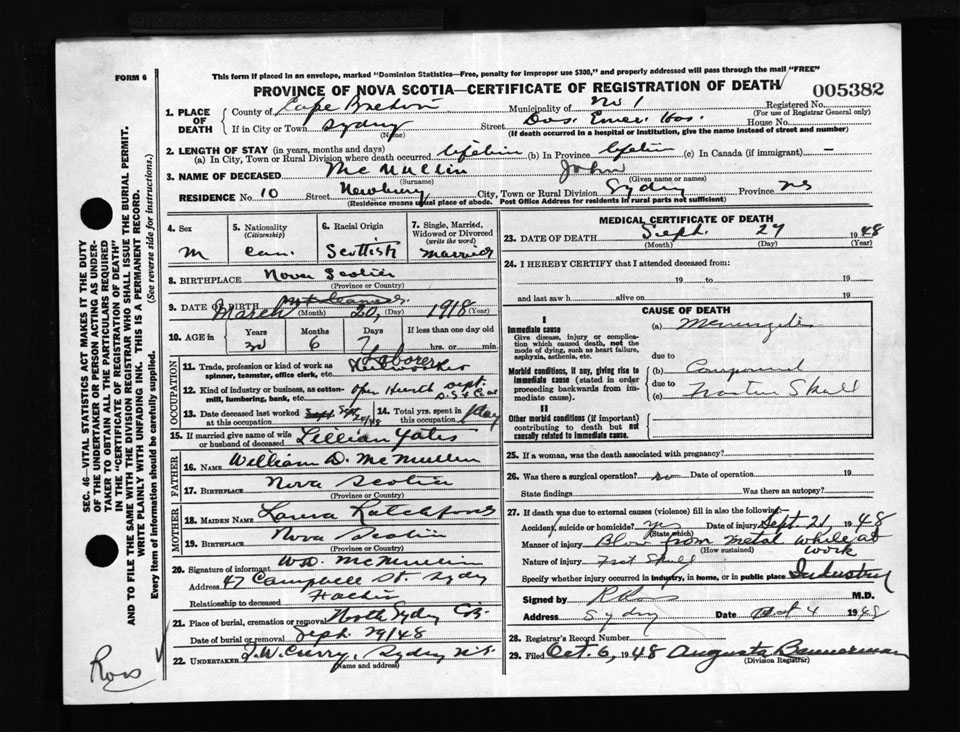 This form if placed in an envelope, marked "Dominion Statistics—Free, penalty for improper use $300," and properly addressed will pass through the mail "FREE"
FORM 6
PROVINCE OF NOVA SCOTIA—CERTIFICATE OF REGISTRATION OF DEATH
005382
1. PLACE OF DEATH
County of Cape Breton Municipality of No 1 Registered No.
(For use of Registrar General only)
If in City or Town Sydney Street Dos. Emer. Hos. House No.
(Name) (If death occurred in a hospital or institution, give the name instead of street and number)
2. LENGTH OF STAY (in years, months and days)
(a) In City, Town or Rural Division where death occurred lifetime (b) In Province lifetime (c) In Canada (if immigrant) —
3. NAME OF DECEASED McMullin John
(Surname) (Given name or names)
RESIDENCE No. 10 Street Newbury City, Town or Rural Division Sydney Province NS
(Residence means usual place of abode. Post Office Address for residents in rural parts not sufficient)
4. Sex
M
5. Nationality
(Citizenship)
Can.
6. Racial Origin
Scottish
7. Single, Married, Widowed or Divorced
(write the word)
Married
8. BIRTHPLACE Nova Scotia
(Province or Country)
9. DATE OF BIRTH March 20, 1918
(Month) (Day) (Year)
10. AGE in Years Months Days If less than one day old
30 6 7 hrs. or min.
OCCUPATION
11. Trade, profession or kind of work as spinner, teamster, office clerk, etc. Laborer
Steelworker
12. Kind of industry or business, as cotton-mill, lumbering, bank, etc. Open Hearth Dept.
13. Date deceased last worked at this occupation Sept
14. Total yrs. spent in this occupation 1 day
15. If married give name of wife or husband of deceased Lillian Yates
FATHER
16. NAME William D. McMullin
17. BIRTHPLACE Nova Scotia
(Province or Country)
MOTHER
18. MAIDEN NAME Laura Ratchford
19. BIRTHPLACE Nova Scotia
(Province or Country)
20. Signature of informant W.D. McMullin
Address 47 Campbell St. Sydney
Relationship to deceased Father
21. Place of burial, cremation or removal North Sydney C.B.
Date of burial or removal Sept. 29/48
22. UNDERTAKER J.W. Curry, Sydney N.S.
(Name and address)
MEDICAL CERTIFICATE OF DEATH
23. DATE OF DEATH Sept. 27 1948
(Month) (Day) (Year)
24. I HEREBY CERTIFY that I attended deceased from:
19 to 19
and last saw h alive on 19
CAUSE OF DEATH
I
Immediate cause
Give disease, injury or complication which caused death, not the mode of dying, such as heart failure, asphyxia, asthenia, etc.
(a) Meningitis
due to
Morbid conditions, if any, giving rise to immediate cause (stated in order proceeding backwards from immediate cause).
(b) Compound
due to
(c) Fracture Skull
II
Other morbid conditions (if important) contributing to death but not causally related to immediate cause.
25. If a woman, was the death associated with pregnancy?
26. Was there a surgical operation? no Date of operation 19
State findings Was there an autopsy?
27. If death was due to external causes (violence) fill in also the following:
Accident, suicide or homicide? yes Date of injury Sept. 21, 1948
(State which)
Manner of injury Blow from metal while at work
(How sustained)
Nature of injury Fract Skull
Specify whether injury occurred in industry, in home, or in public place Industry
Signed by M.D.
Address Sydney Date Oct 4 1948
28. Registrar's Record Number
29. Filed Oct. 6, 1948 Augusta Bannerman
(Division Registrar)
SEC. 46—VITAL STATISTICS ACT MAKES IT THE DUTY
OF THE UNDERTAKER OR PERSON ACTING AS UNDER-
TAKER TO OBTAIN ALL THE PARTICULARS REQUIRED
IN THE "CERTIFICATE OF REGISTRATION OF DEATH"
AND TO FILE THE SAME WITH THE DIVISION REGISTRAR WHO SHALL ISSUE THE BURIAL PERMIT.
WRITE PLAINLY WITH UNFADING INK. THIS IS A PERMANENT RECORD.
Every item of information should be carefully supplied. (See reverse side for instructions.)
Ross